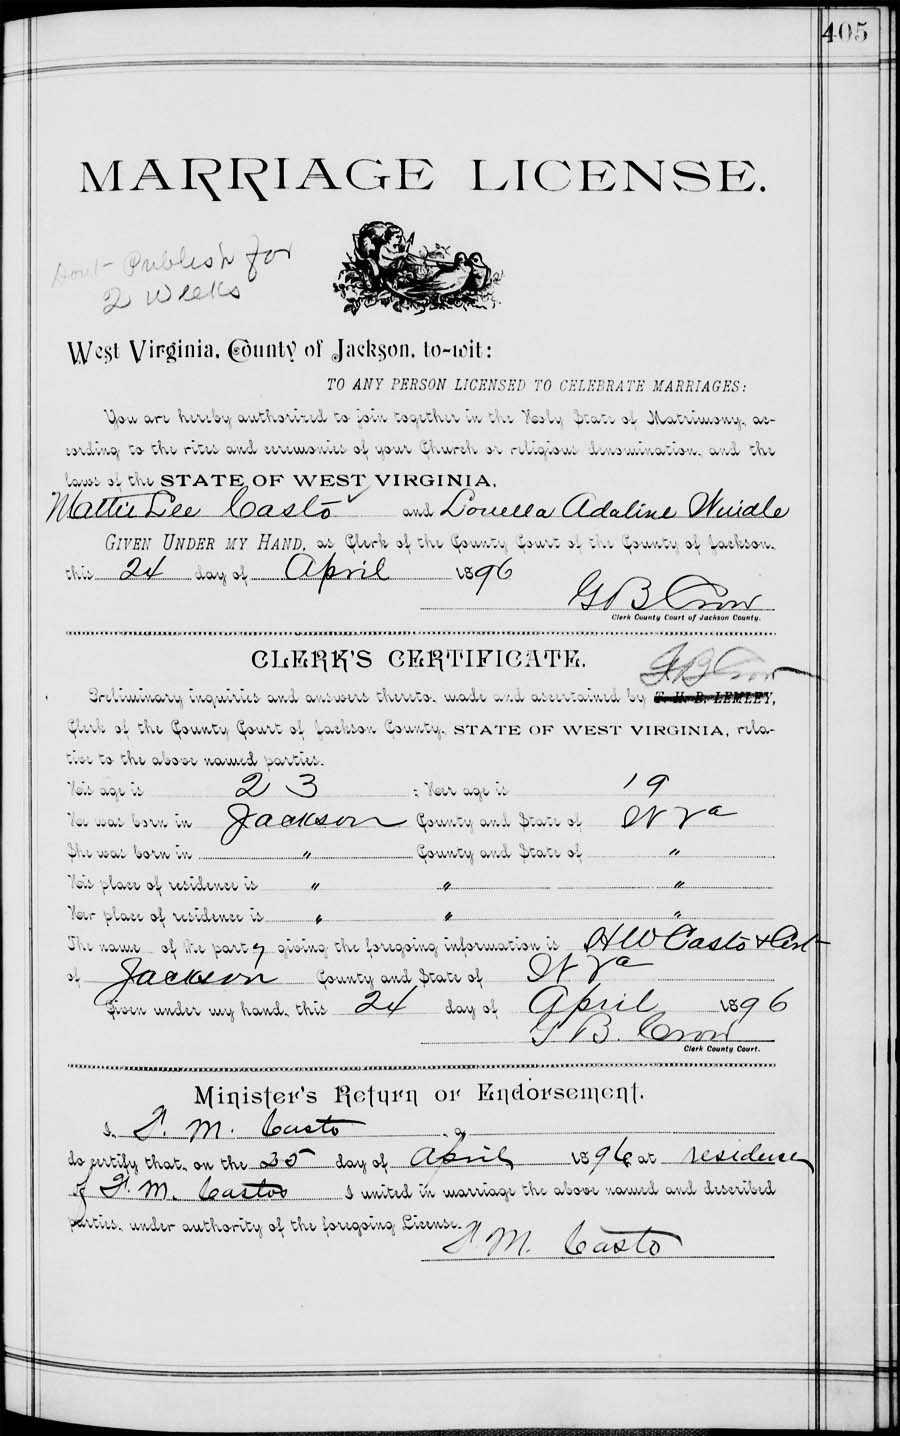 405
MARRIAGE LICENSE.
Dont Publish for
2 Weeks
West Virginia, County of Jackson, to-wit:
TO ANY PERSON LICENSED TO CELEBRATE MARRIAGES:
You are hereby authorized to join together in the Holy State of Matrimony, ac-
cording to the rites and ceremonies of your Church or religious denomination, and the
laws of the STATE OF WEST VIRGINIA,
Mattie Lee Casto and Louella Adaline Windle
GIVEN UNDER MY HAND, as Clerk of the County Court of the County of Jackson,
this 24 day of April 1896
G B Crow
Clerk County Court of Jackson County.
CLERK'S CERTIFICATE.
G B Crow
Preliminary inquiries and answers thereto, made and ascertained by T. H. B. LEMLEY,
Clerk of the County Court of Jackson County, STATE OF WEST VIRGINIA, rela-
tive to the above named parties.
His age is 23 ; Her age is 19
He was born in Jackson County and State of W Va
She was born in " County and State of "
His place of residence is " " "
Her place of residence is " " "
The name of the party giving the foregoing information is H W Casto &
of Jackson County and State of W Va
Given under my hand, this 24 day of April 1896
G B. Crow
Clerk County Court.
Minister's Return or Endorsement.
I, F. M. Casto, a
do certify that, on the 25 day of April 1896 at residence
of F. M. Castos I united in marriage the above named and described
parties, under authority of the foregoing License.
F. M. Casto